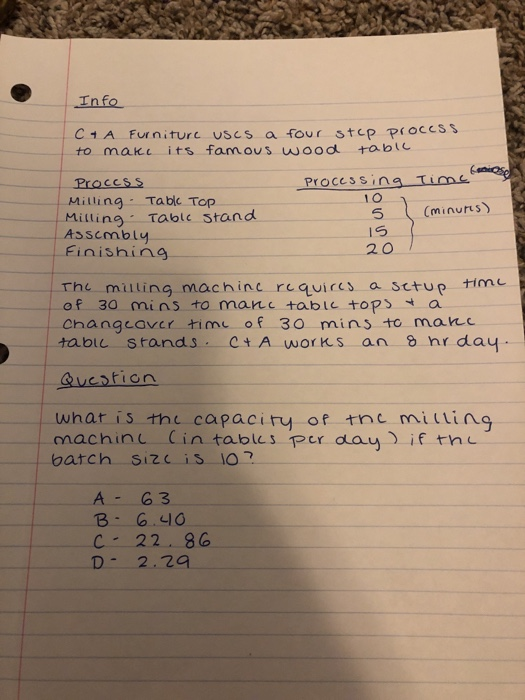 Info
C + A Furniture uses a four step process
to make its famous wood table
Process Processing Time
Milling - Table Top 10
Milling - Table Stand 5 (minutes)
Assembly 15
Finishing 20
The milling machine requires a setup time
of 30 mins to make table tops + a
changeover time of 30 mins to make
table stands. C + A works an 8 hr day.
Question
What is the capacity of the milling
machine (in tables per day) if the
batch size is 10?
A - 63
B - 6.40
C - 22.86
D - 2.29